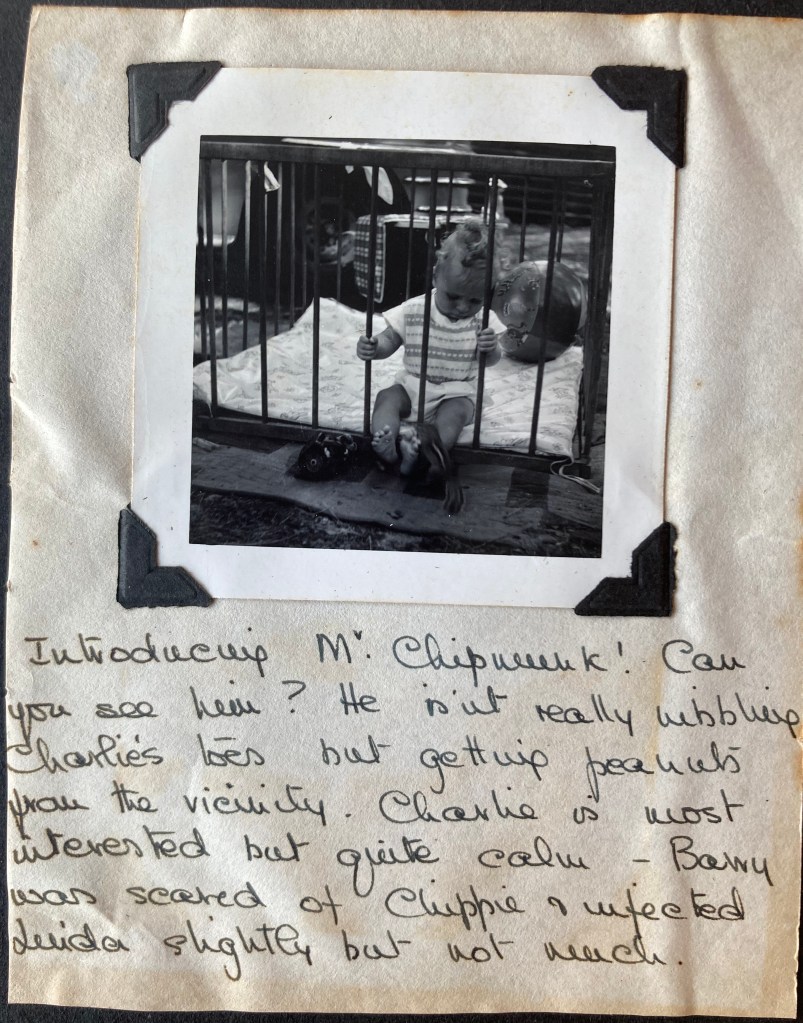 Introducing Mr. Chipmunk! Can
you see him? He isn't really nibbling
Charlie's toes but getting peanuts
from the vicinity. Charlie is most
interested but quite calm - Barry
was scared of Chippie & infected
Linda slightly but not much.